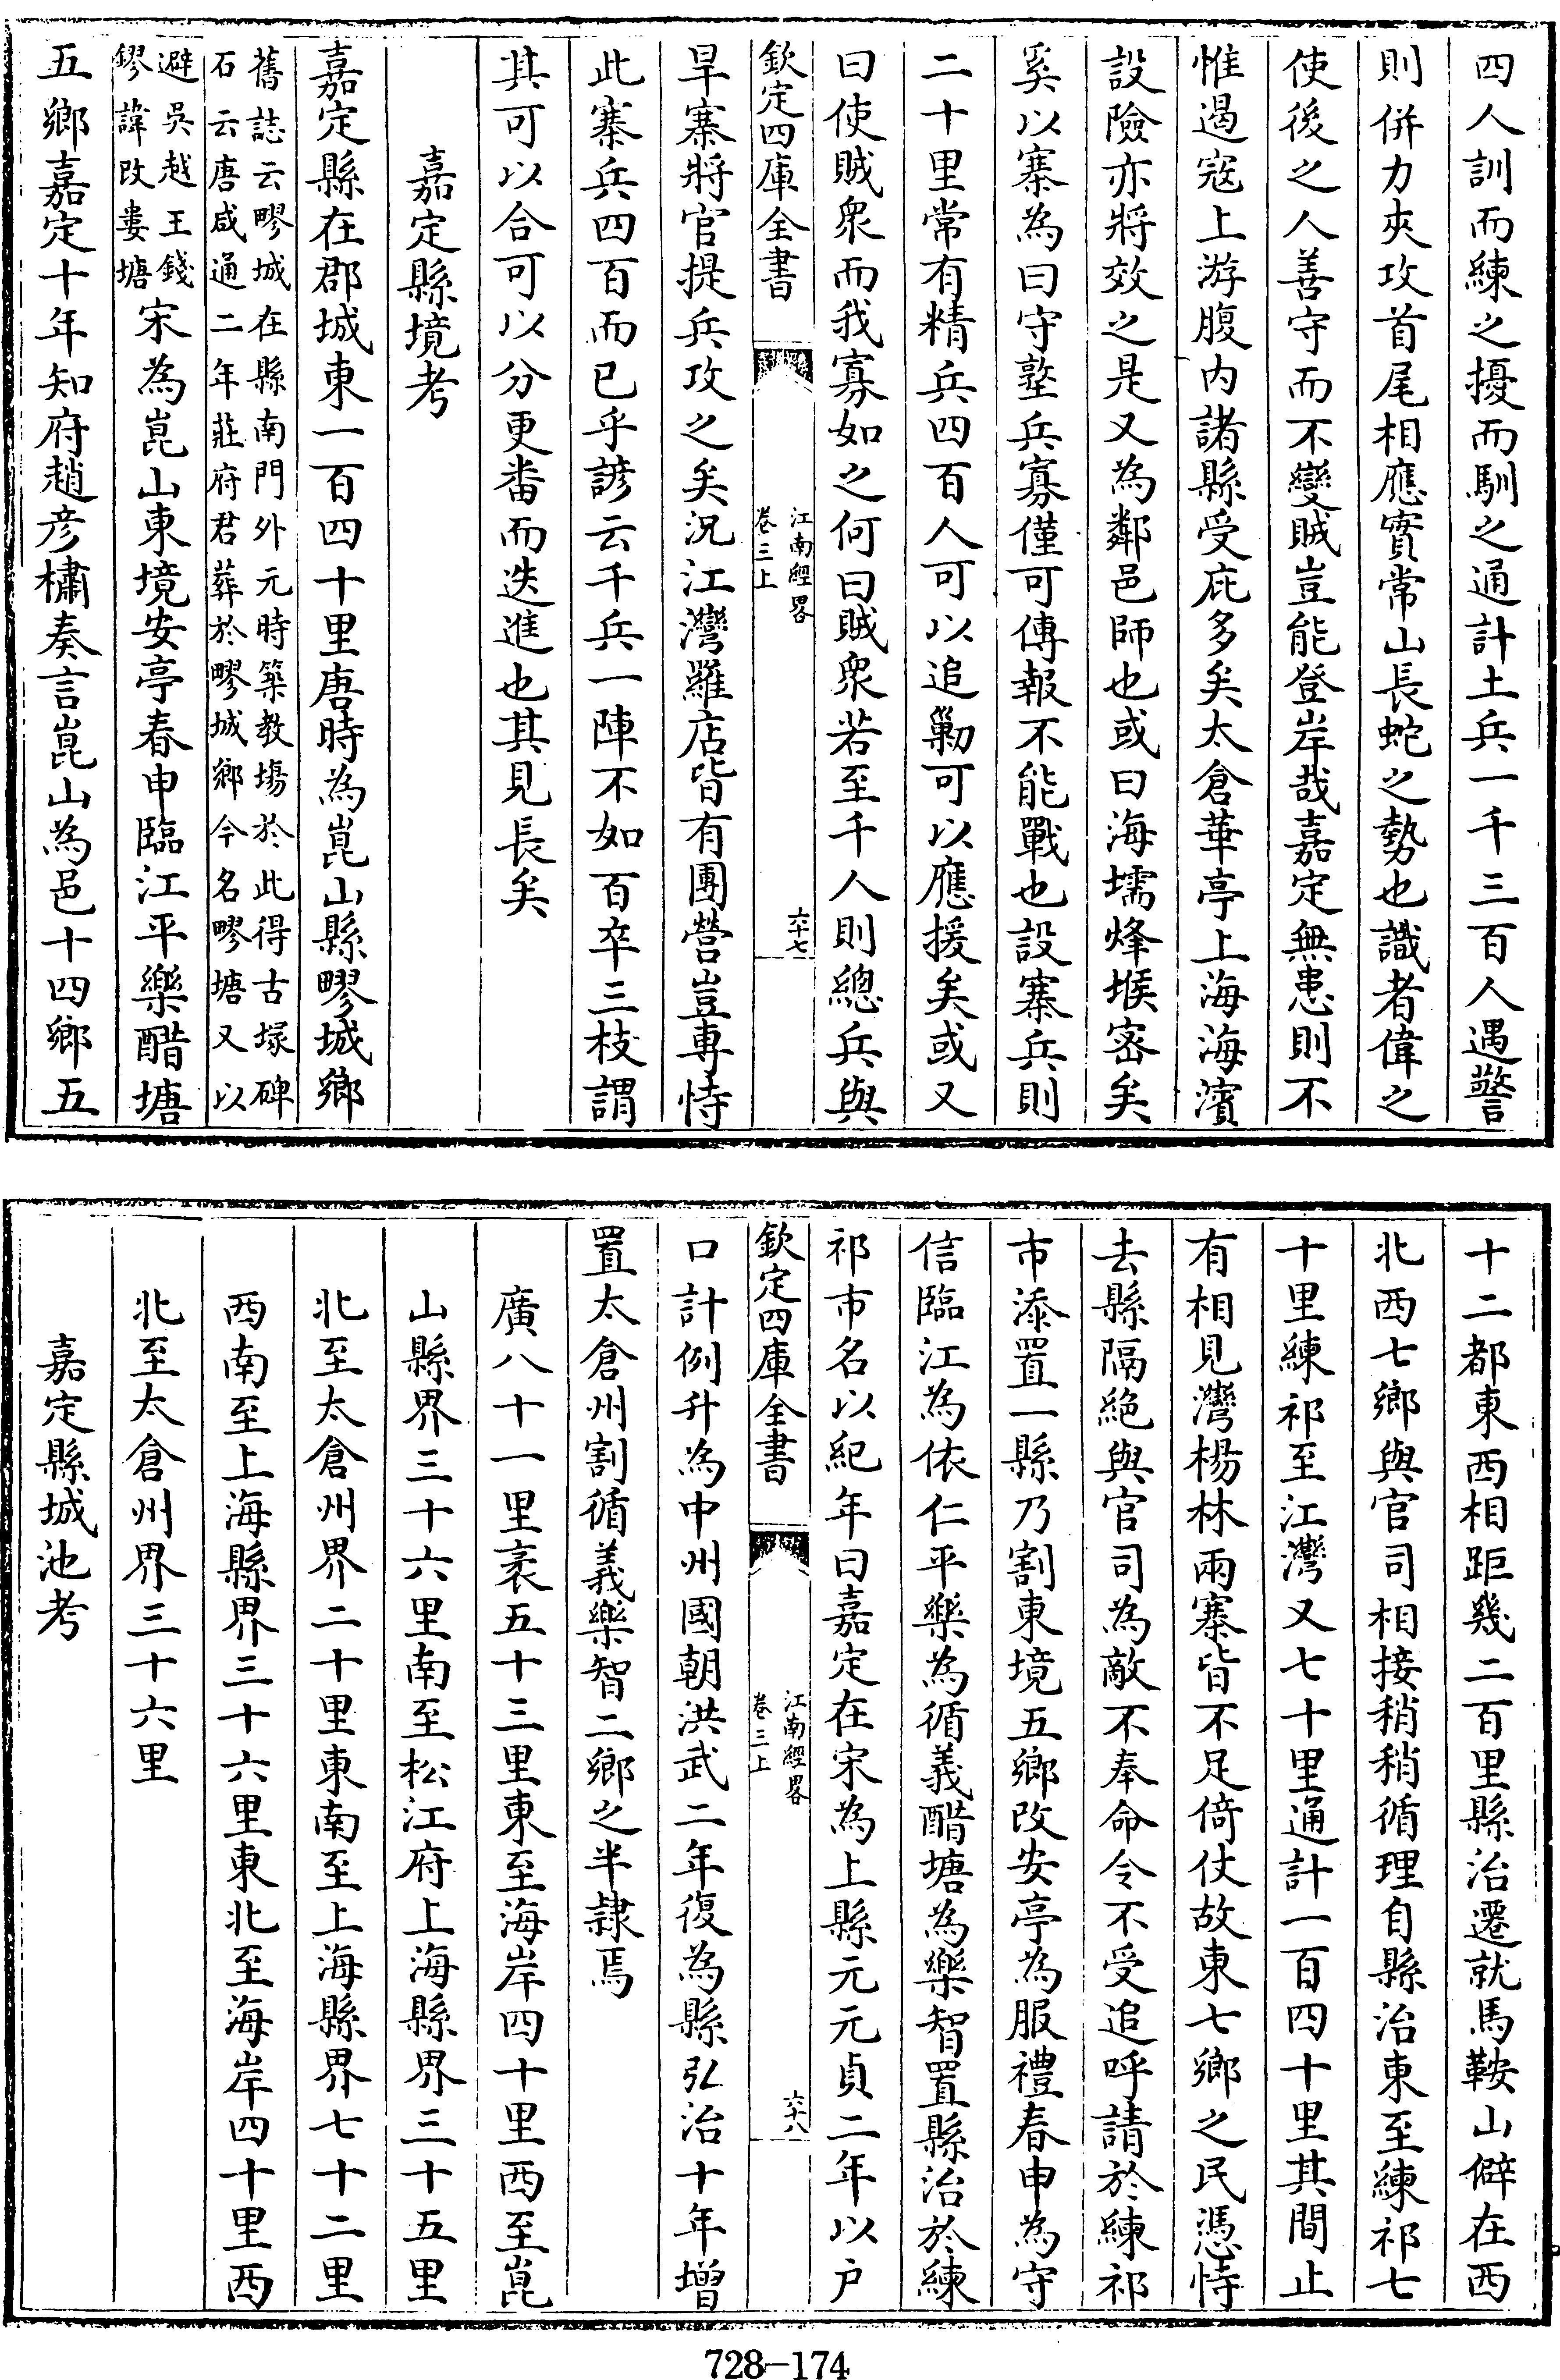 四人訓而練之擾而馴之通計土兵一千三百人遇警
則併力夾攻首尾相應實常山長蛇之勢也識者偉之
使後之人善守而不變賊豈能登岸哉嘉定無患則不
惟遏寇上游腹内諸縣受庇多矣太倉華亭上海海濱
設險亦將效之是又為鄰邑師也或曰海壖烽堠密矣
奚以寨為曰守墪兵寡僅可傳報不能戰也設寨兵則
二十里常有精兵四百人可以追勦可以應援矣或又
曰使賊衆而我寡如之何曰賊衆若至千人則總兵與
欽定四庫全書
江南經畧
卷三上
六十七
旱寨將官提兵攻之矣況江灣羅店皆有團營豈專恃
此寨兵四百而已乎諺云千兵一陣不如百卒三枝謂
其可以合可以分更畨而迭進也其見長矣
嘉定縣境考
嘉定縣在郡城東一百四十里唐時為崑山縣疁城鄉
舊誌云疁城在縣南門外元時築教塲於此得古塚碑
石云唐咸通二年莊府君葬於疁城鄉今名疁塘又以
避吳越王錢
鏐諱改婁塘
宋為崑山東境安亭春申臨江平樂醋塘
五鄉嘉定十年知府趙彦橚奏言崑山為邑十四鄉五
十二都東西相距幾二百里縣治遷就馬鞍山僻在西
北西七鄉與官司相接稍稍循理自縣治東至練祁七
十里練祁至江灣又七十里通計一百四十里其間止
有相見灣楊林兩寨皆不足倚仗故東七鄉之民憑恃
去縣隔絶與官司為敵不奉命令不受追呼請於練祁
市添置一縣乃割東境五鄉改安亭為服禮春申為守
信臨江為依仁平樂為循義醋塘為樂智置縣治於練
祁市名以紀年曰嘉定在宋為上縣元元貞二年以户
欽定四庫全書
江南經畧
卷三上
六十八
口計例升為中州國朝洪武二年復為縣弘治十年增
置太倉州割循義樂智二鄉之半隷焉
廣八十一里袤五十三里東至海岸四十里西至崑
山縣界三十六里南至松江府上海縣界三十五里
北至太倉州界二十里東南至上海縣界七十二里
西南至上海縣界三十六里東北至海岸四十里西
北至太倉州界三十六里
嘉定縣城池考
728-174